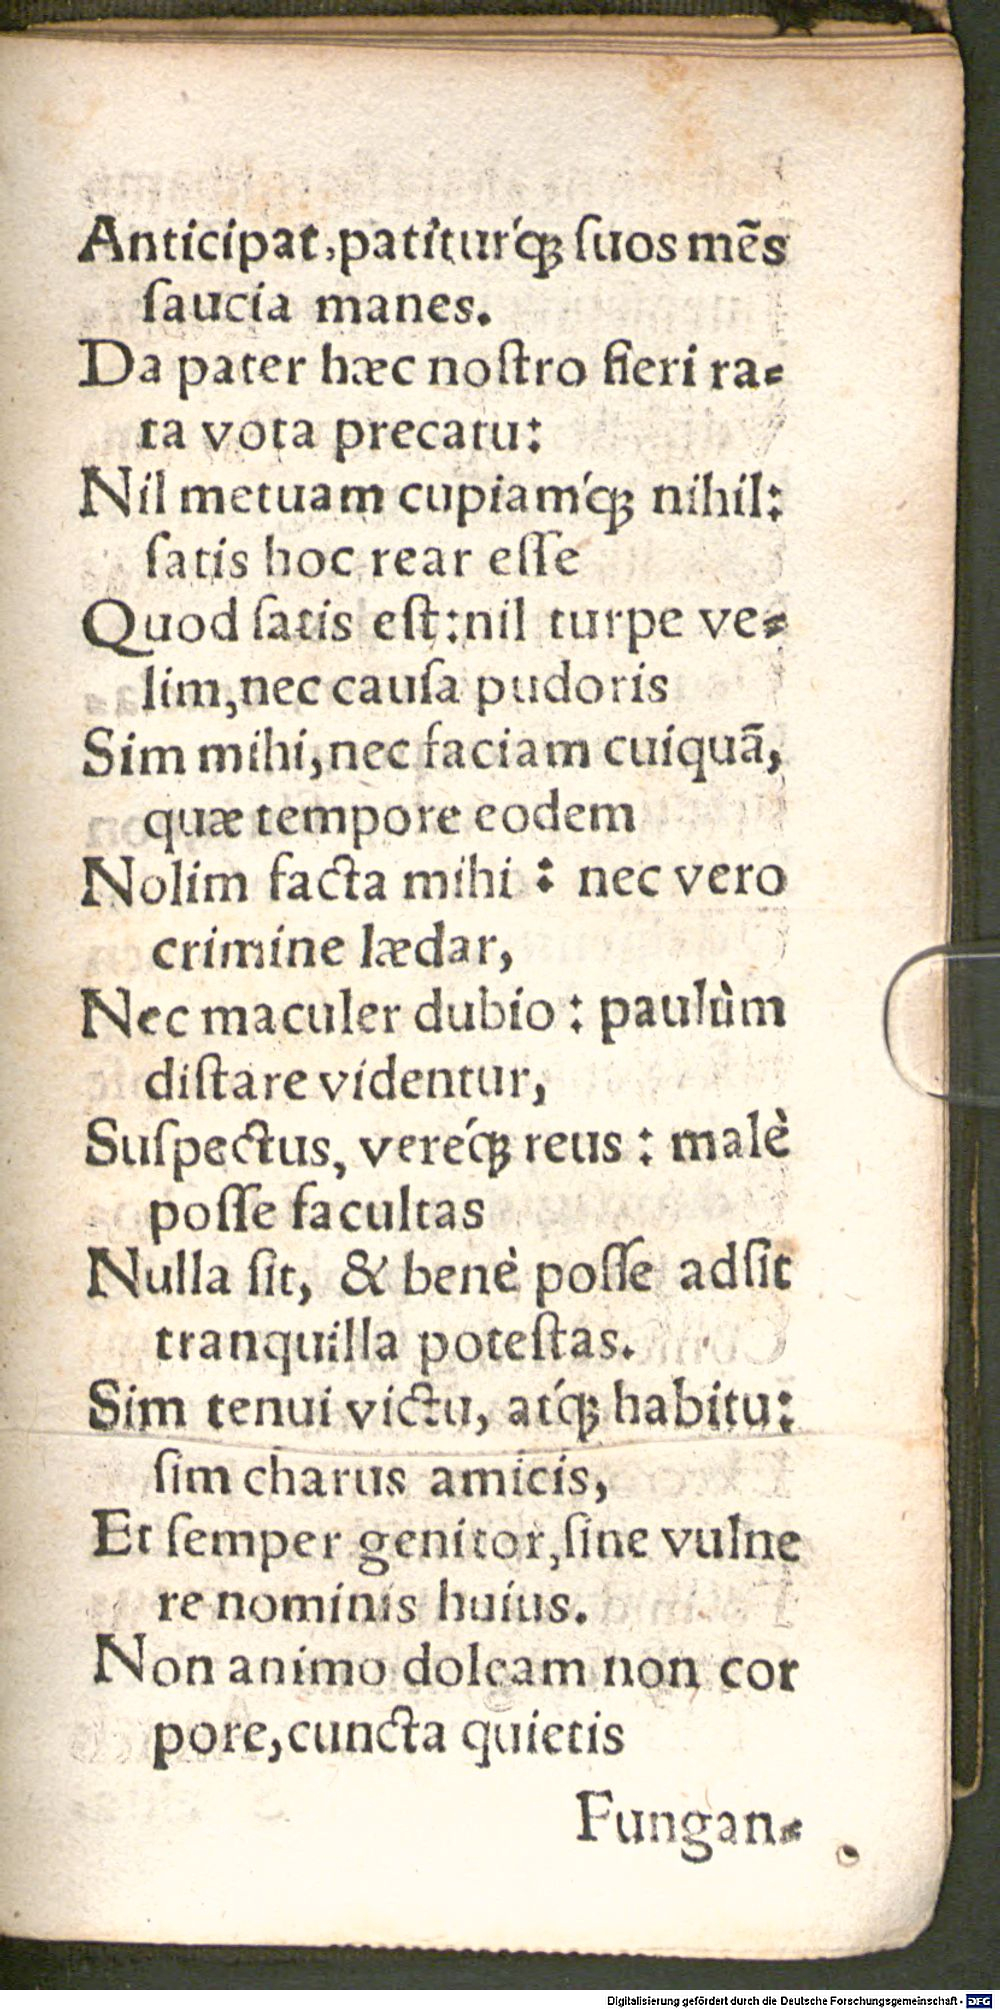 Anticipat, patitur'q́ꝫ ſuos mẽs
ſaucia manes.
Da pater hæc noſtro fieri ra⸗
ta vota precatu:
Nil metuam cupiam'q́ꝫ nihil:
ſatis hoc rear eſſe
Quod ſatis eſt: nil turpe ve⸗
lim, nec cauſa pudoris
Sim mihi, nec faciam cuiquã,
quæ tempore eodem
Nolim facta mihi : nec vero
crimine lædar,
Nec maculer dubio : paulùm
diſtare videntur,
Suſpectus, vereq́ꝫ reus : malè
poſſe facultas
Nulla ſit, & benè poſſe adſit
tranquilla poteſtas.
Sim tenui victu, atq́ꝫ habitu:
ſim charus amicis,
Et ſemper genitor, ſine vulne
re nominis huius.
Non animo doleam non cor
pore, cuncta quietis
Fungan⸗
Digitalisierung gefördert durch die Deutsche Forschungsgemeinschaft - DFG